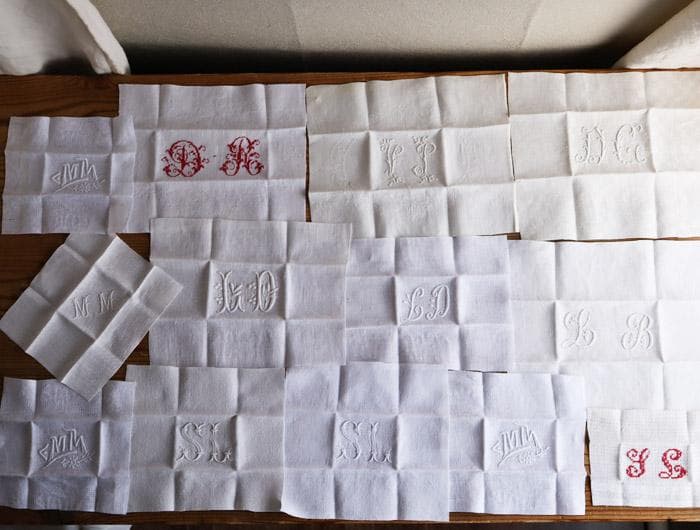 MM
DR
II
DC
MM
LD
LD
LB
MM
SL
SL
MM